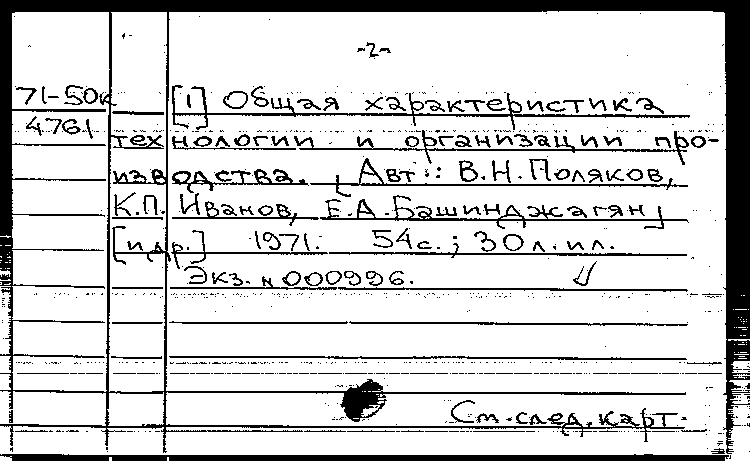 -2-
71-50к [1] Общая характеристика
4761 технологии и организации про-
изводства. [Авт.: В.Н. Поляков,
К.П. Иванов, Е.А. Башинджагян]
[и др.] 1971. 54 с.; 30 л. ил.
Экз. № 000996.
См. след. карт.